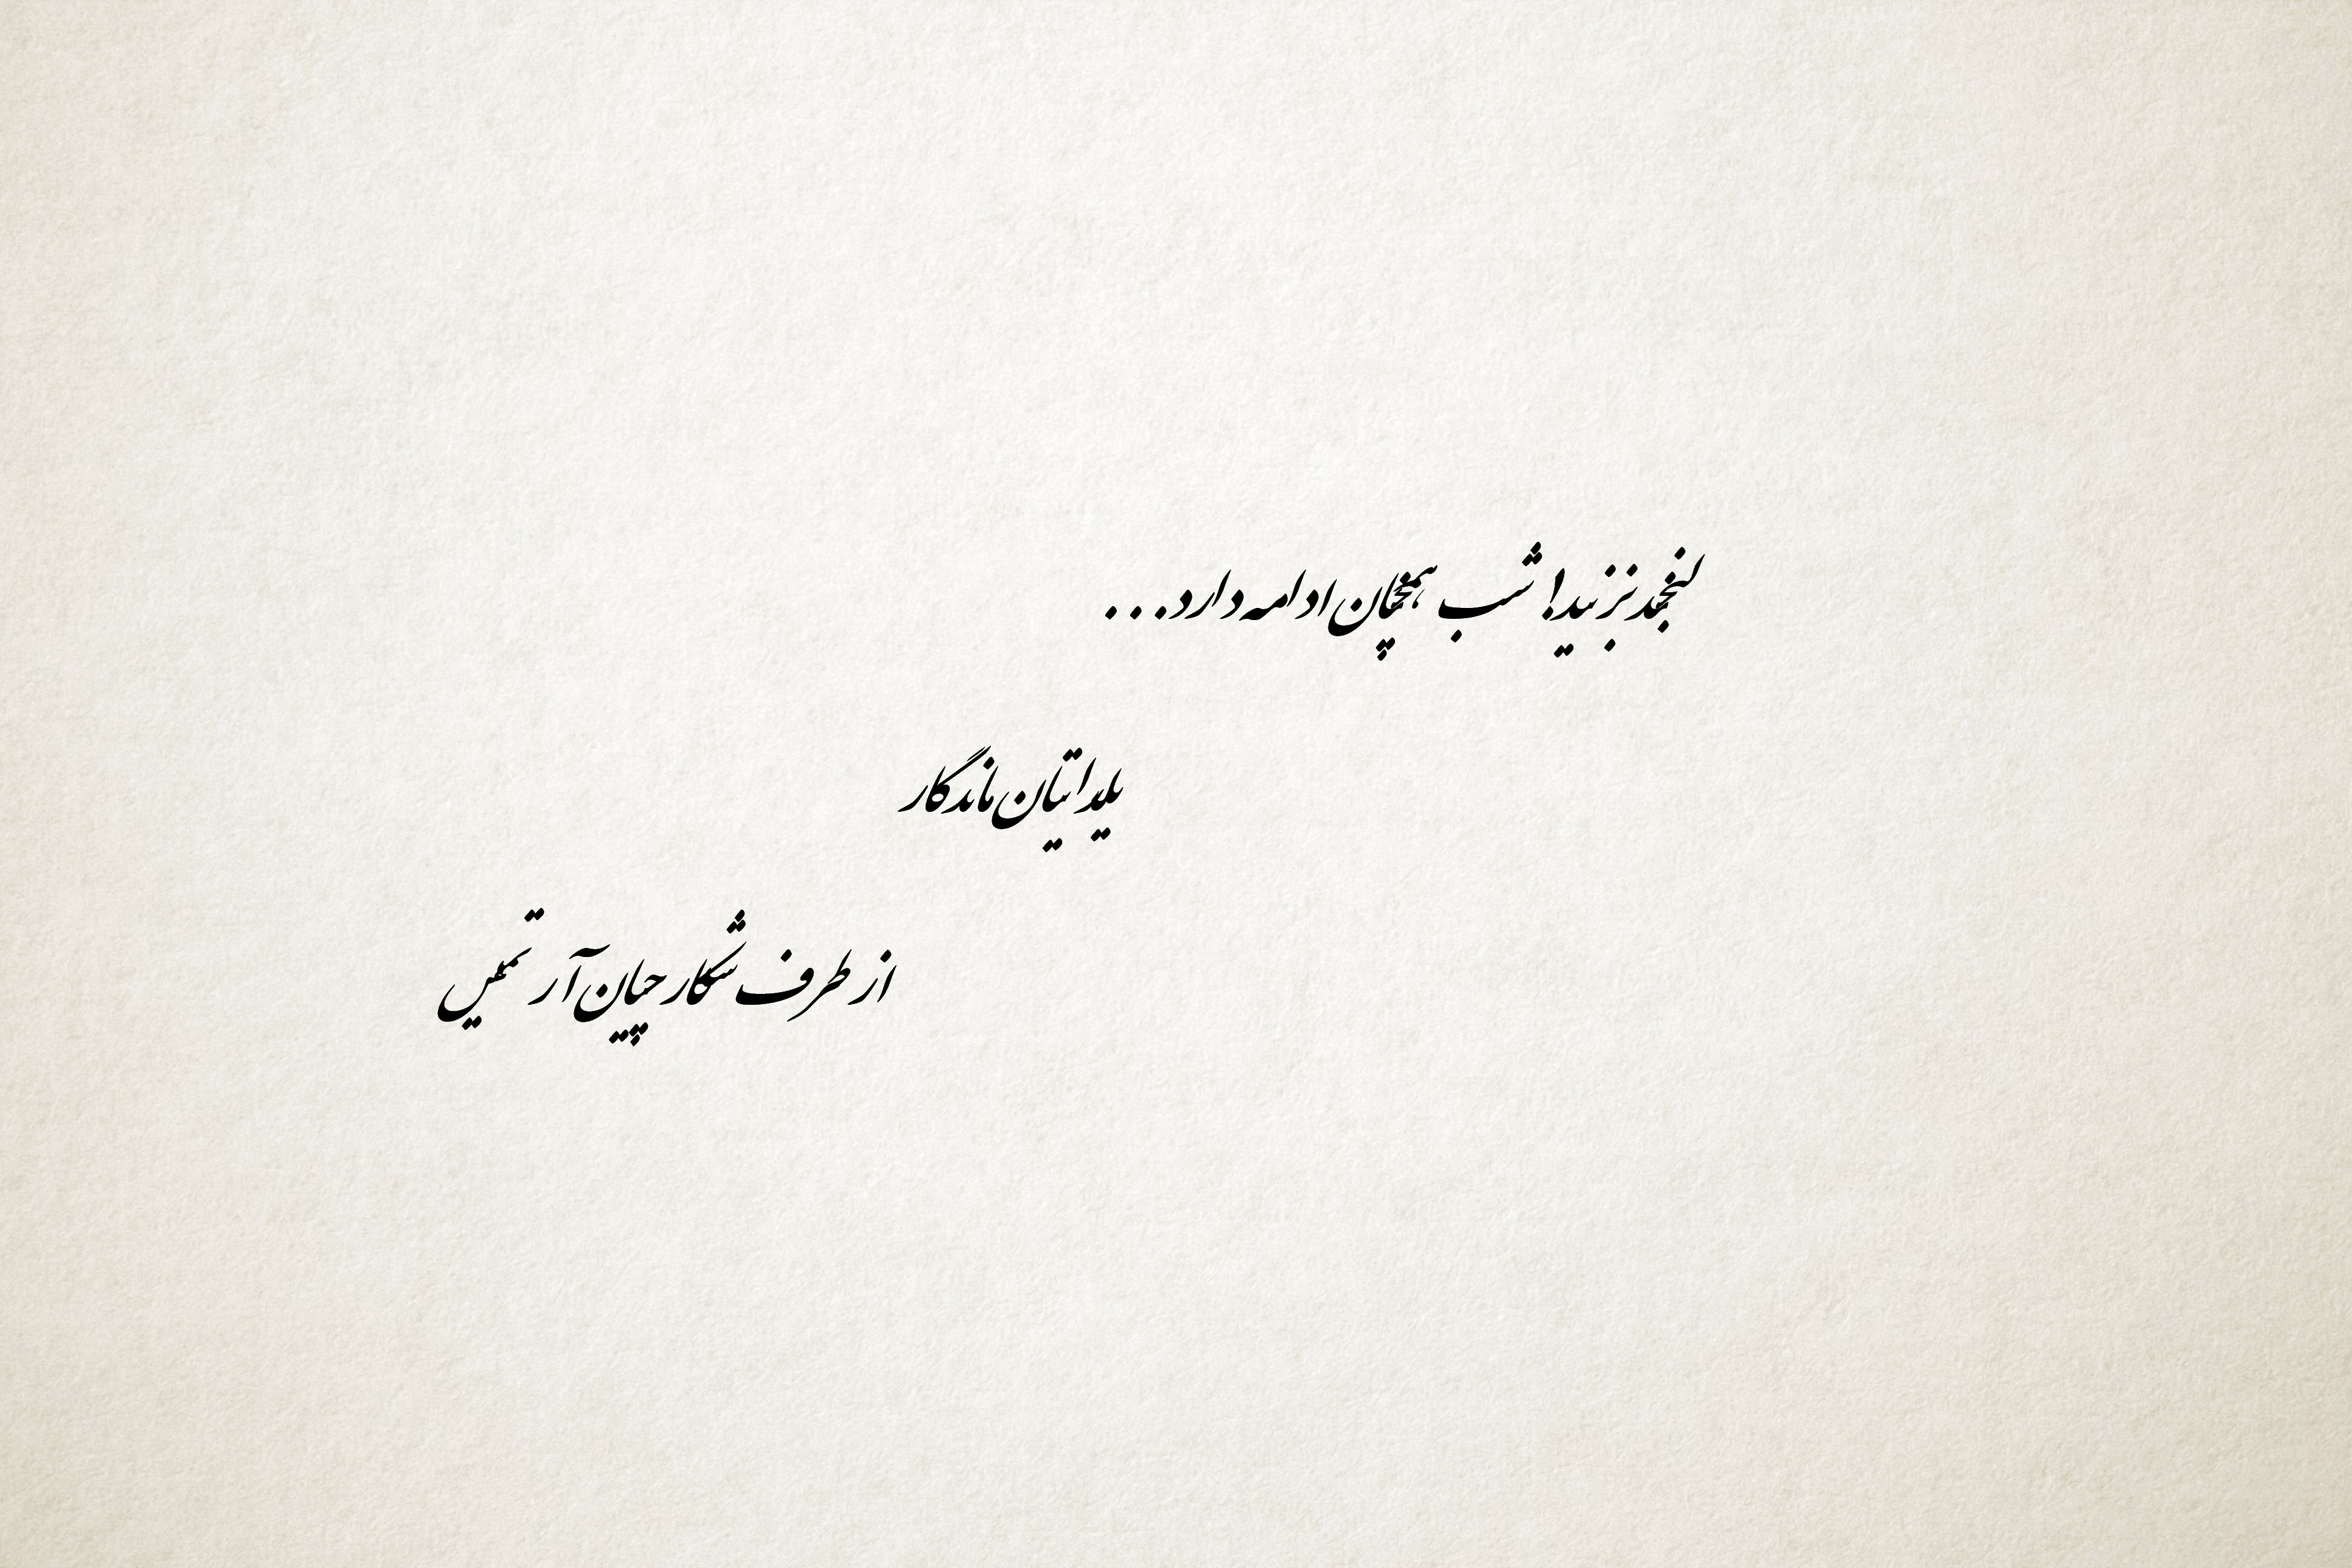 لبخند بزنید! شب همچنان ادامه دارد...
یلداتیان ماندگار
از طرف شکارچیان آرتمیس